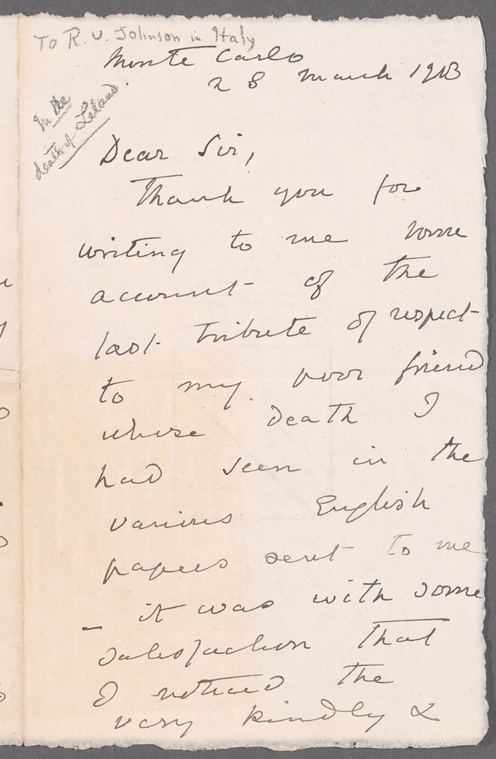 To R. U. Johnson in Italy
On the
death of Leland.
Monte Carlo
28 March 1903
Dear Sir,
Thank you for
writing to me some
account of the
last tribute of respect
to my poor friend
whose death I
had seen in the
various English
papers sent to me
– it was with some
satisfaction that
I noticed the
very kindly &